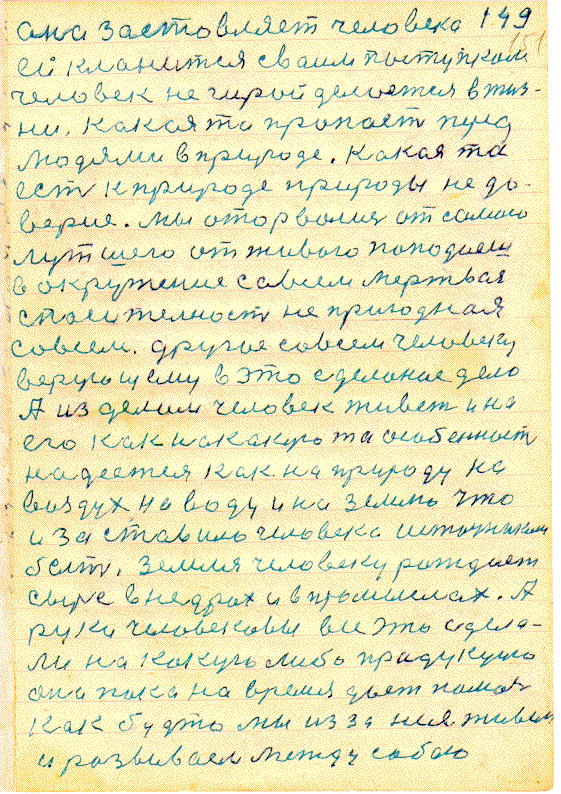 она заставляет человека 149
ей кланится своим поступком
человек не гирой делается в жиз-
ни. Какая та пропаст пред
людями в природе. Какая та
ест к природе природы не до-
верие. Мы оторвалия от самаго
лутшего от живого поподаем
в окружение совсем мертвая
спасителност не пригодная
совсем. другое совсем человеку
верующему в это сделоное дело
А из делом человек живет и на
его как на какую та особенност
надеется как на природу на
воздух на воду и на землю что
и заставило человека источником
бытт. Земля человеку рождает
сырье в недрах и в промыслах. А
руки человековы все это сдела-
ли на какую либо прадукцию
она пока на время дает помоч
как будто мы из за нея живем
и розвиваем между собою